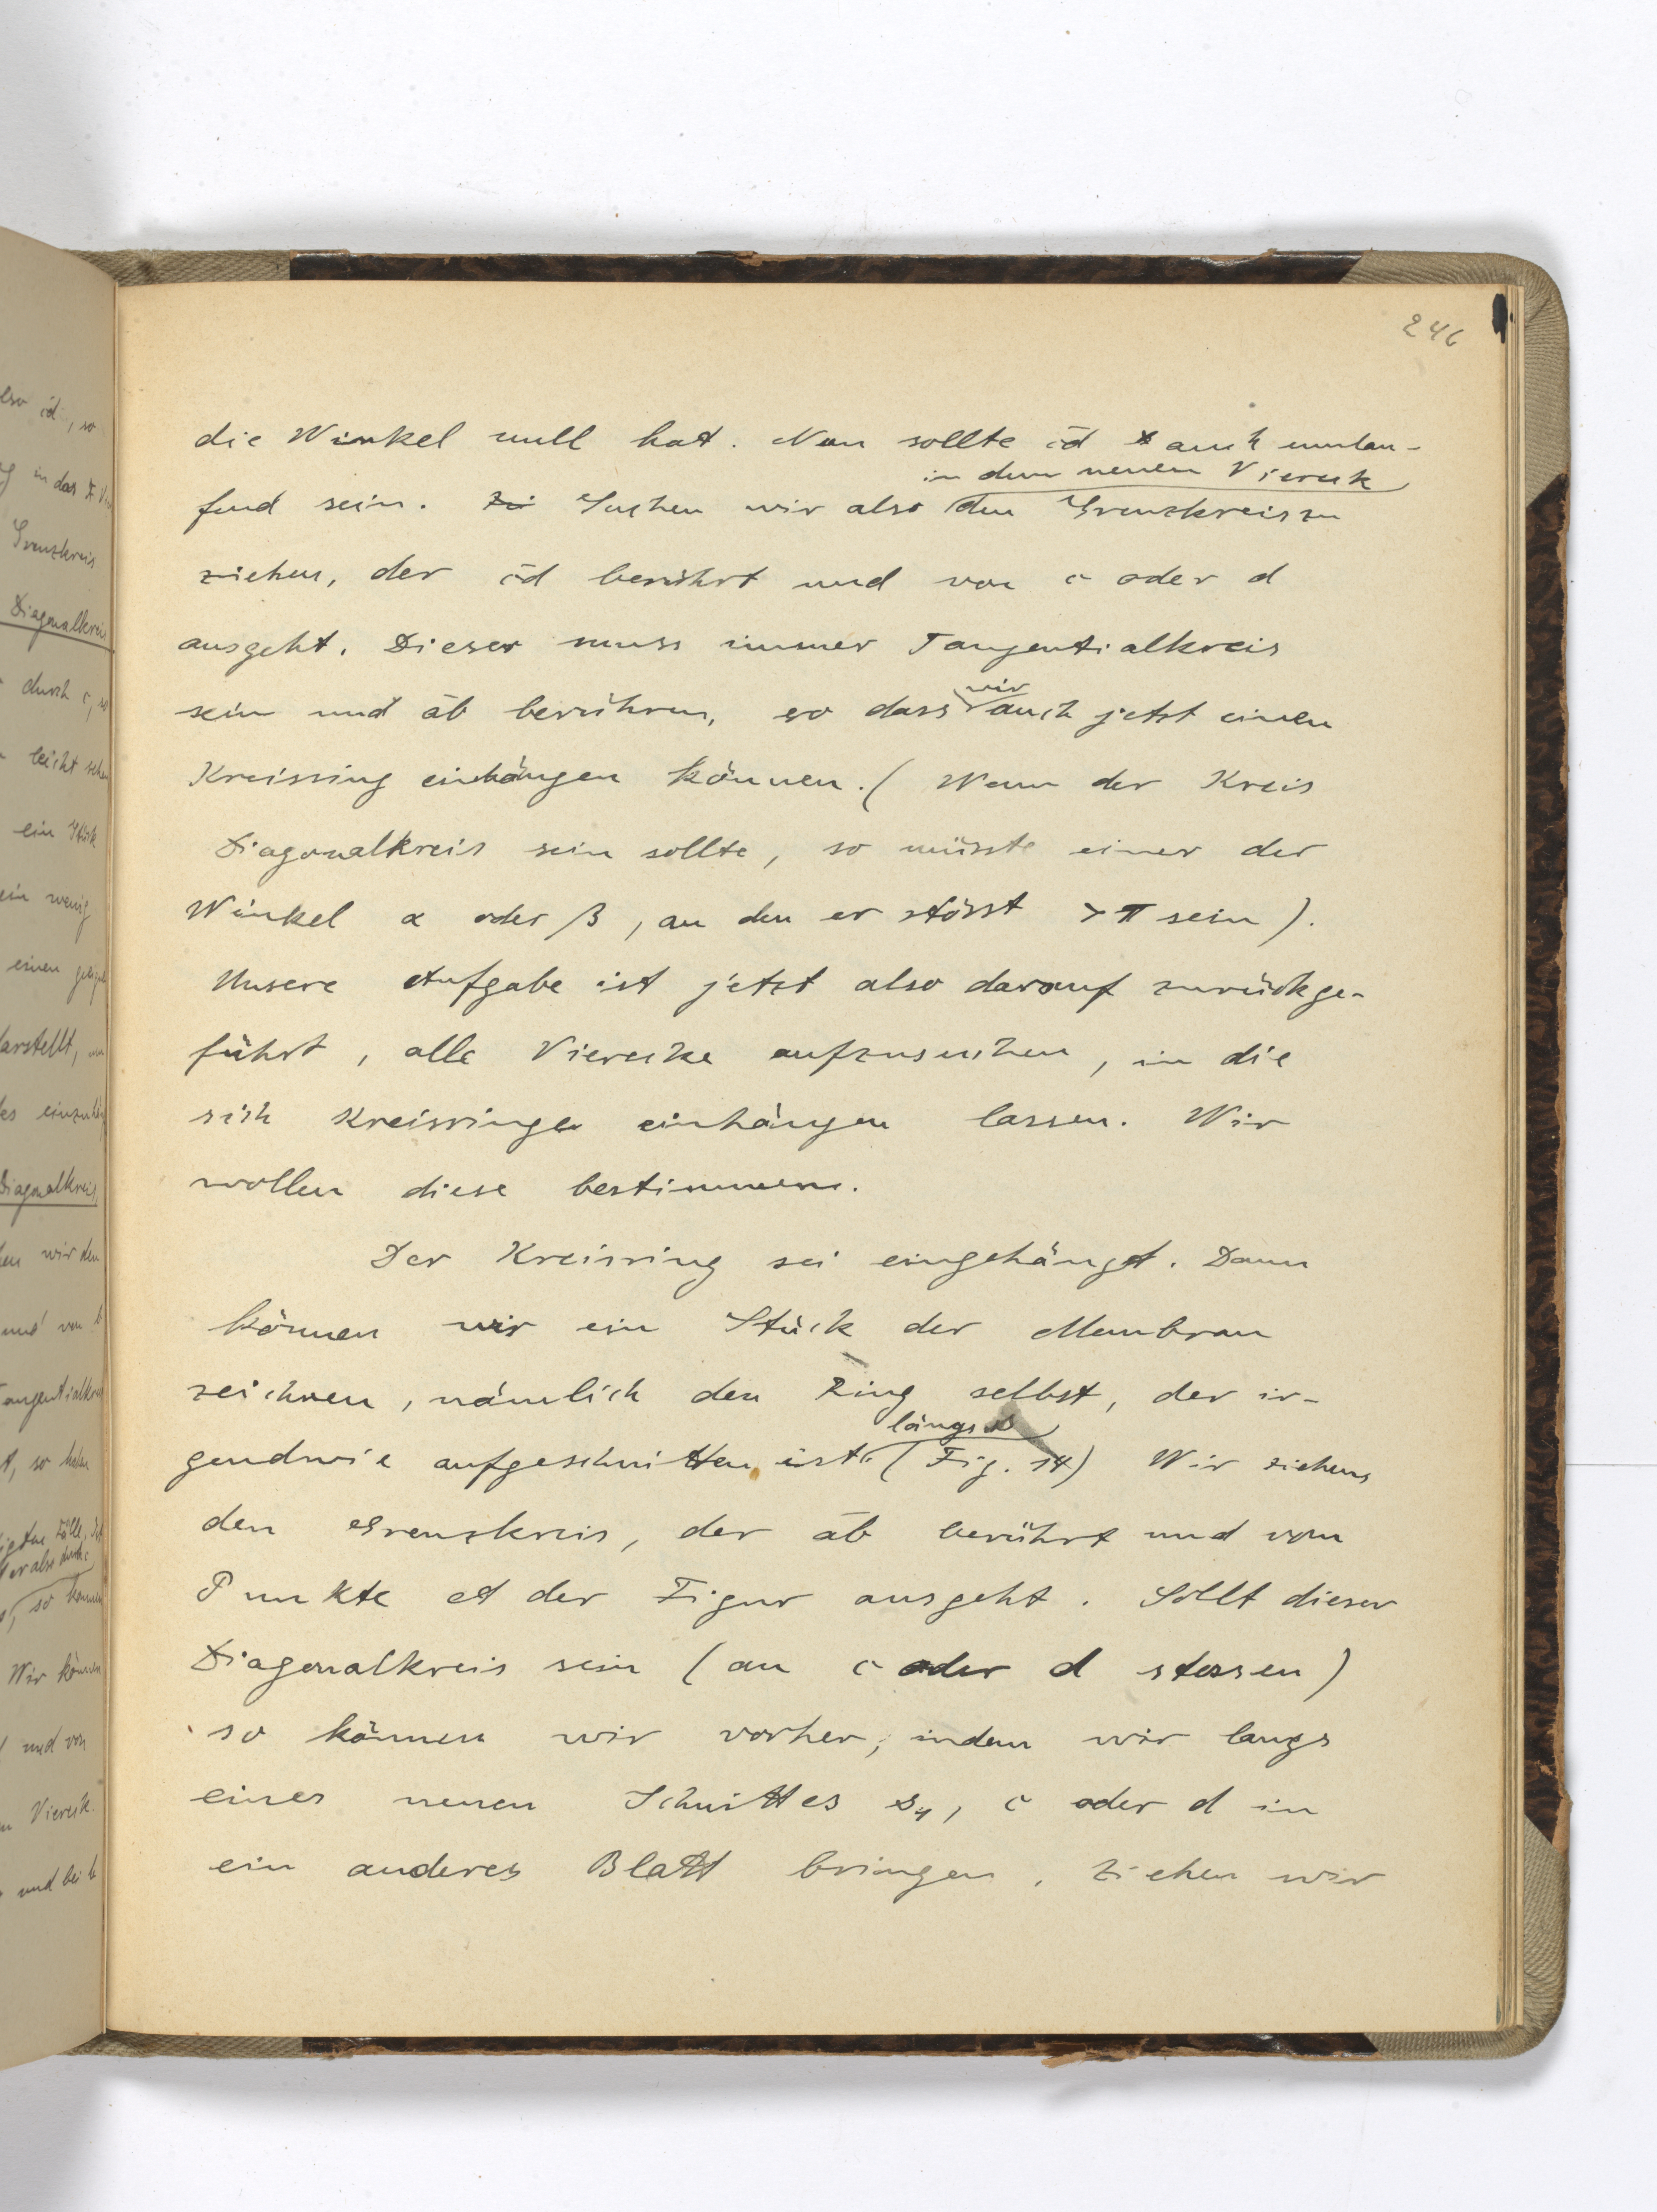 246
die Winkel null hat. Nun sollte c̄d auch umlau-
in dem neuen Viereck
fend sein. Suchen wir also den Grenzkreis zu
ziehen, der c̄d berührt und von c oder d
ausgeht. Dieser muss immer Tangentialkreis
sein und āb berühren, so dass wir auch jetzt einen
Kreisring einhängen können. (Wenn der Kreis
Diagonalkreis sein sollte, so müsste einer der
Winkel α oder β, an den er stösst > π sein).
Unsere Aufgabe ist jetzt also darauf zurückge-
führt, alle Vierecke aufzusuchen, in die
sich Kreisringe einhängen lassen. Wir
wollen diese bestimmen.
Der Kreisring sei eingehängt. Dann
können wir ein Stück der Membran
zeichnen, nämlich den Ring selbst, der ir-
längs s
gendwie aufgeschnitten ist. (Fig. 14) Wir ziehen
den Grenzkreis, der āb berührt und vom
Punkte A der Figur ausgeht. Sollt dieser
Diagonalkreis sein (an c oder d stossen)
so können wir vorher, indem wir langs
eines neuen Schnittes s₁, c oder d in
ein anderes Blatt bringen. Ziehen wir
also c̄d, so
in das
Grenzkreis
Diagonalkreis
durch c, so
leicht sehen
ein Stück
ein wenig
einen
darstellt,
Diagonalkreis
wir den
und von b
Tangentialkreis
Wir können
und von
Viereck.
und bei b